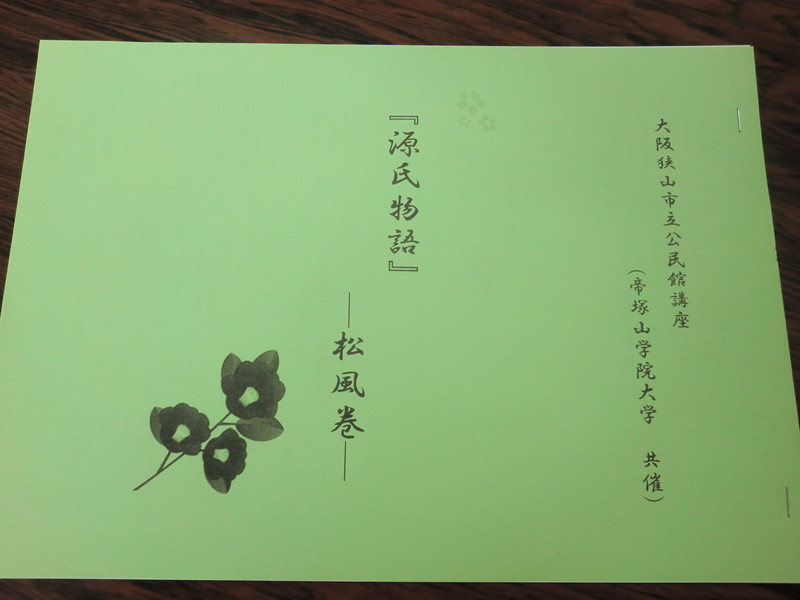 大阪狭山市立公民館講座
（帝塚山学院大学　共催）
『源氏物語』
―松風巻―